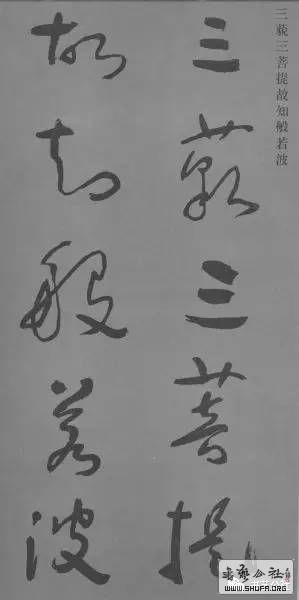 三藐三菩提故知般若波
三藐三菩提
故知般若波
书艺公社
WWW.SHUFA.ORG